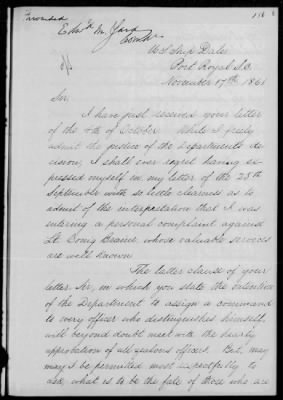 Edw'd M. Yard
Comdr
U.S. Ship Dale
Port Royal S.C.
November 17th 1861
Sir,
I have just received your letter
of the 4th of October. While I freely
admit the justice of the Department's de-
cision, I shall ever regret having ex-
pressed myself in my letter of the 25th
September with so little clearness as to
admit of the interpretation that I was
entering a personal complaint against
Lt. Comg Braine, whose valuable services
are well known
The latter clause of your
letter Sir, in which you state the intention
of the Department to assign a command
to every officer who distinguishes himself,
will beyond doubt meet with the hearty
approbation of all zealous officers. But, may
may I be permitted most respectfully to
ask, what is to be the fate of those who are